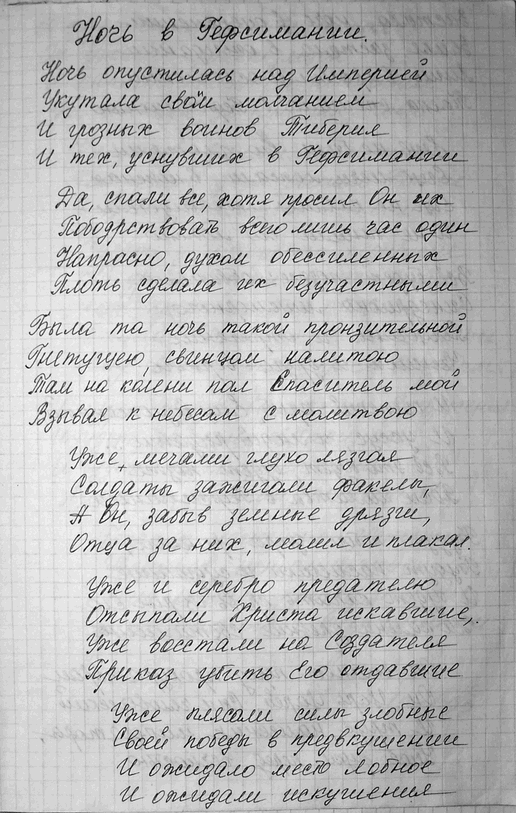 Ночь в Гефсимании.
Ночь опустилась над Империей
Укутала свои молчанием
И грозных воинов Тиберия
И тех, уснувших в Гефсимании
Да, спали все, хотя просил Он их
Пободрствовать всего лишь час один
Напрасно, духом обессиленных
Плоть сделала их безучастными
Была та ночь такой пронзительной
Гнетущею, свинцом налитою
Там на колени пал Спаситель мой
Взывая к небесам с молитвою
Уже, мечами глухо лязгая
Солдаты зажигали факелы,
А Он, забыв земные дрязги,
Отца за них, молил и плакал.
Уже и серебро предателю
Отсыпали Христа искавшие,
Уже восстали на Создателя
Приказ убить Его отдавшие
Уже плясали силы злобные
Своей победы в предвкушении
И ожидало место лобное
И ожидали искушения